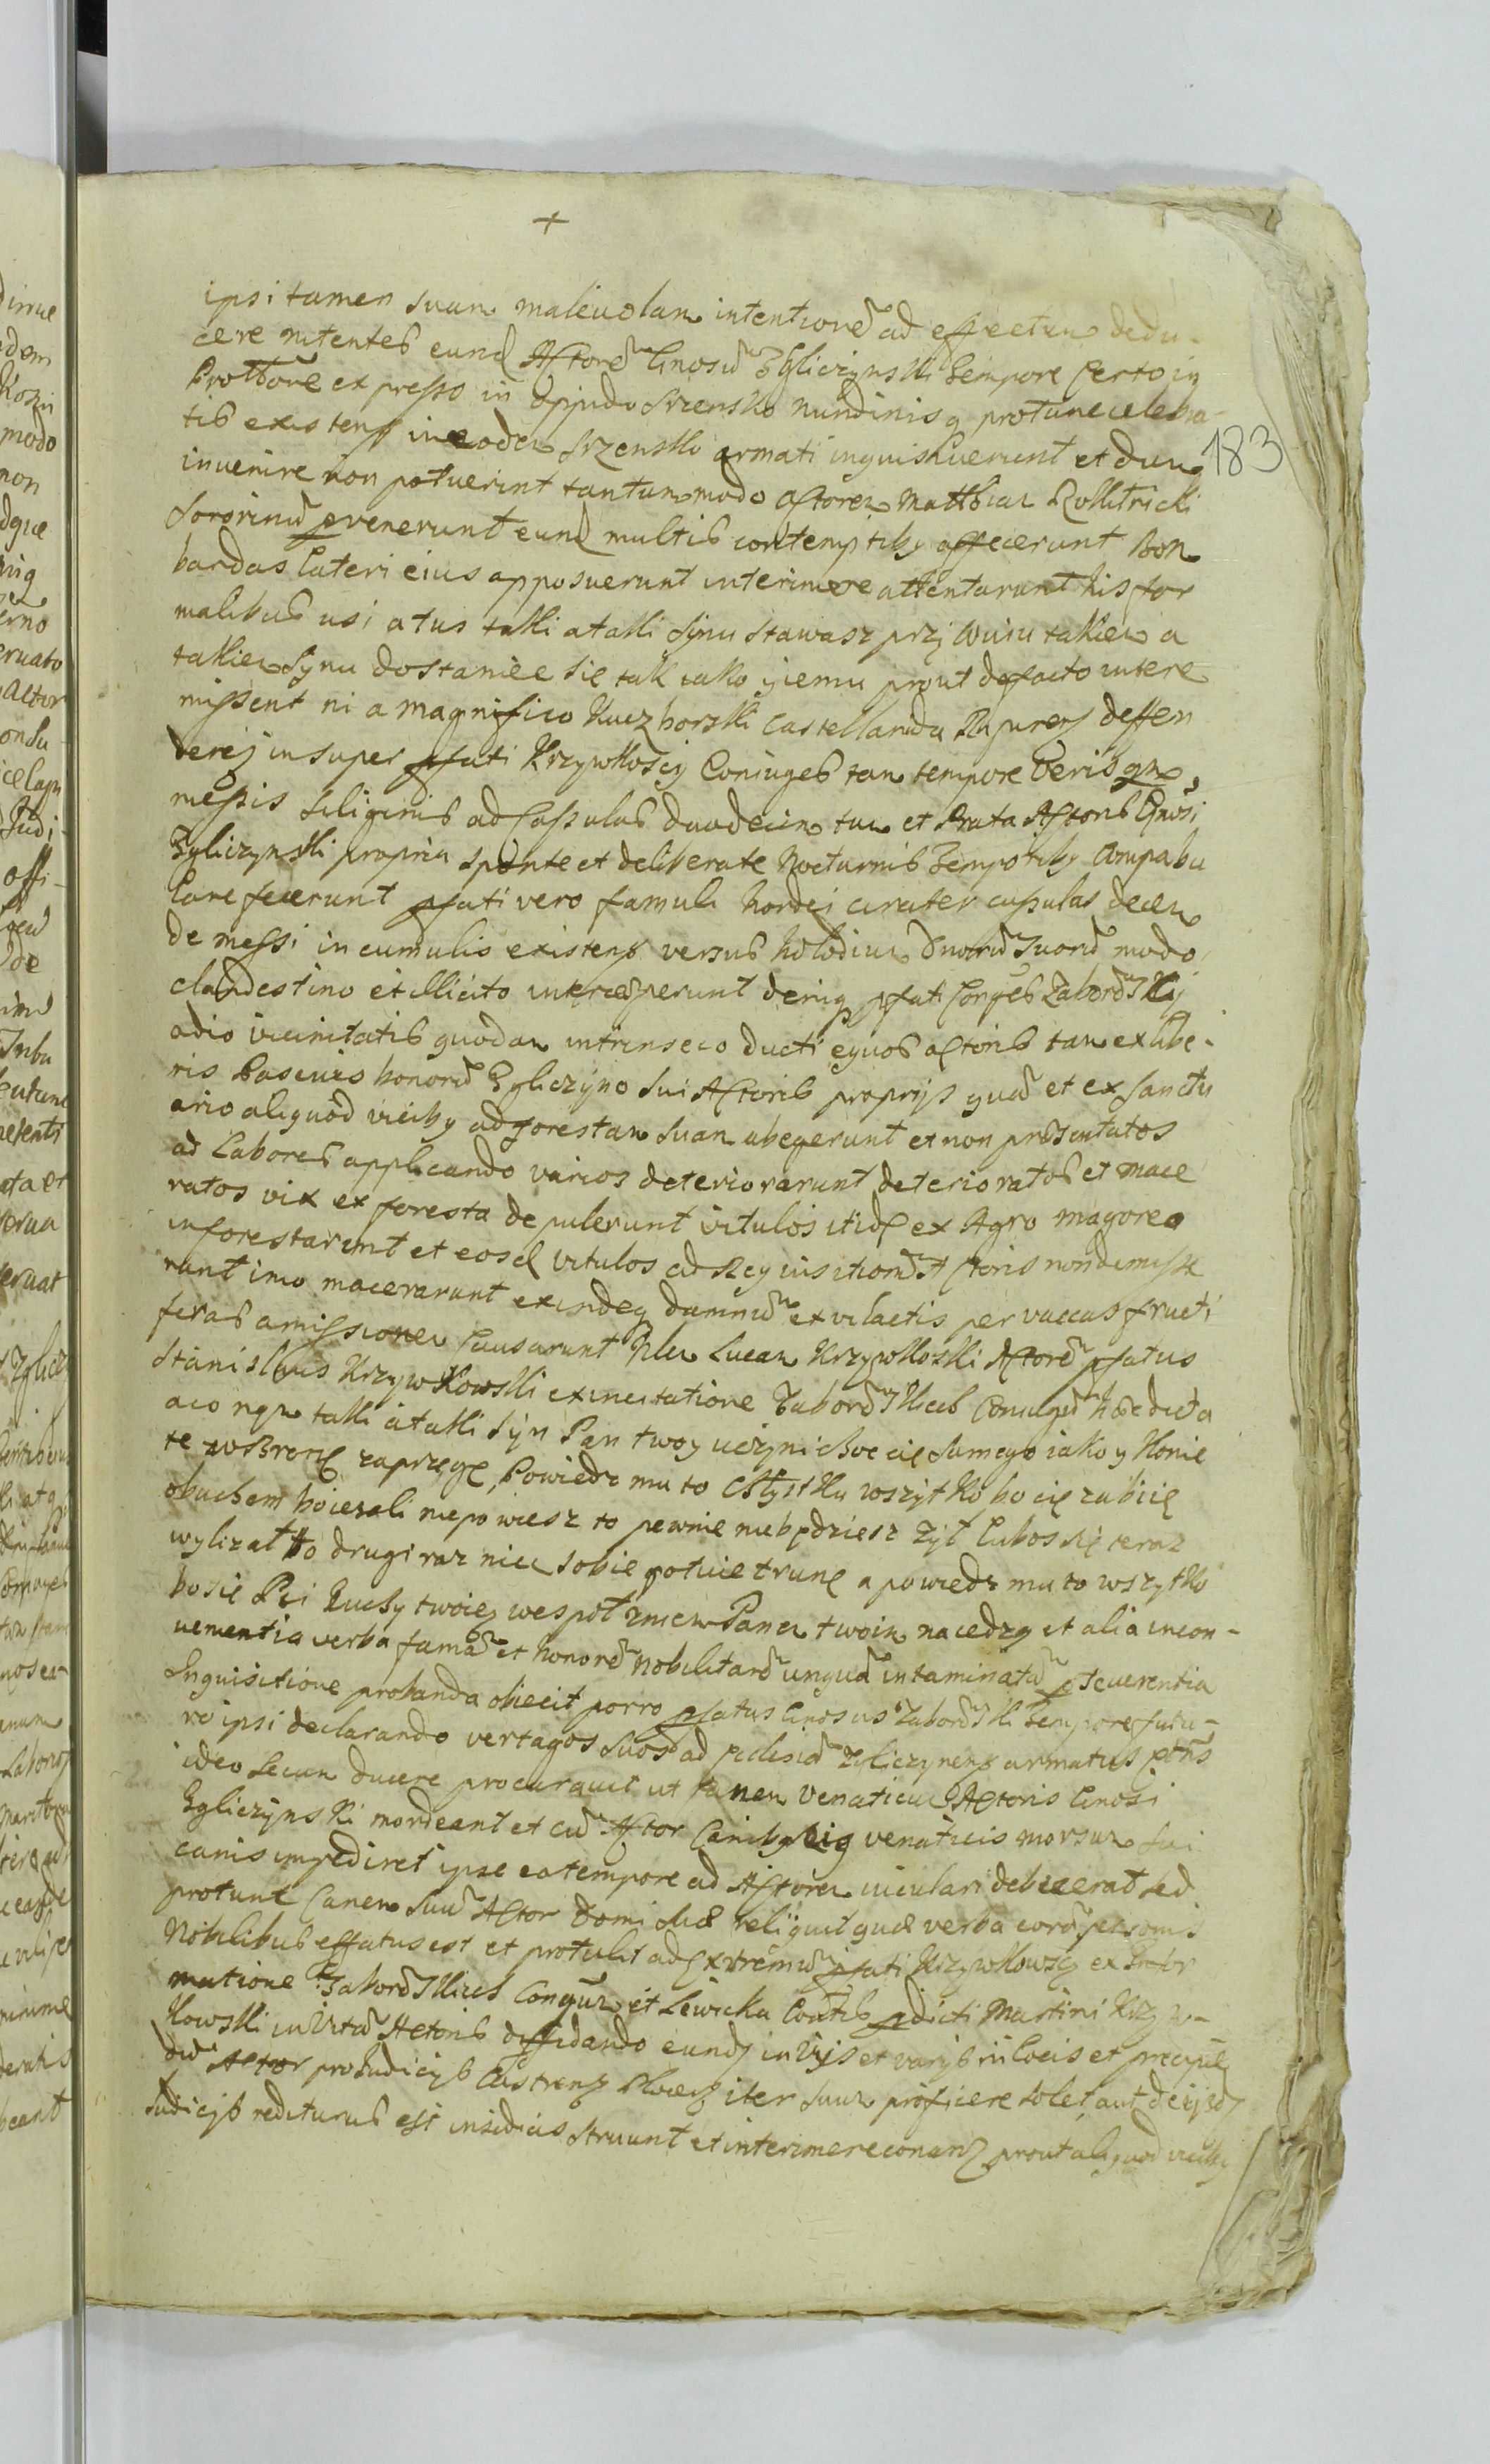 +
183
ipsi tamen suam malevolam intentionē ad effectum dedu-
cere nitentes eund Actorē Gnosū Zgliczynski tempore certo in
Prottōne expresso in oppido Szrensko nundinisq protunc celebra-
tis existens in eodem Szrensko armati inquisiverunt et dum
invenire non potuerint tantummodo Actorem Matthiam Rokitnicki
Sororinū pvenerunt eund multis contemptibus affecerunt Bom
bardas lateri eius apposuerunt interimere attentarunt his for
malibus usi a tus taki a taki synu stawasz przy wuiu takiem a
takiem synu dostaniec się tak iako y iemu prout defacto intere
missent ni a magnifico Kuczborski Castellanida Rypinens deffen
deretj insuper pfati Krzywkoscy Coniuges tam tempore veris qm
messis siliginis ad Cassulas duodecim tum et Prata Actoris Gnosi
Zgliczynski propria sponte et deliberate nocturnis temporibus compabu
lare fecerunt pfati vero famuli hordei circiter cassulas decem
de messi in cumulis existens versus Hołodium Dnorū suorū modo
clandestino et illicito interceperunt deniq pfati Conges Zaborowscy
odio vicinitatis quodam intrinseco ducti equos Actoris tam ex libe-
ris Pascuis bonorū Zgliczyno sui Actoris proprys quā et ex sanctu
ario aliquod vicibus ad forestam suam abegerunt et non presentatos
ad Labores applicando varios deteriorarunt deterioratos et mace
ratos vix ex foresta depulerunt vitulos itid ex Agro
inforestarunt et eosd vitulos ad Requisitionē Actoris non dimisse
runt imo macerarunt exindeq damnū ex vi lactis per vaccas fructi
feras amissionem Causarunt Lucam Krzywkoski Actorē pfatus
Stanislaus Krzywkowski ex incitatione Zaborowskich Coniugū
aco taki a taki syn Pan twoy uczyni choc cię samego iako y konie
te wsbronę zaprzęgę Powiedz mu to wszytko bo cię zabiię
obuchem bo iezeli nie powiesz to pewnie niebędziesz zył lubos się teraz
wylizał to drugi raz niec sobie gotuie trunę a powiedz mu to wszytko
bo się twoiey wespoł zniem Panem twoim nacedzę et alia incon-
venientia verba famā et honorē Nobilitarē unquā intaminatā pseverentia
Inquisitione probanda obiecit porro pfatus Gnosus Zaborowski tempore futu-
ro ipsi declarando vertagos suos ad Ecclesiā Zgliczynens armatus
ideo secum ducere procuravit ut canem venaticum Actoris Gnosi
Zgliczynski mordeant et cū Actor Canibus venaticis morsum sui
canis impediret ipse ea tempore ad Actorem iaculari debuerat sed
protunc Canem suū Actor Domi suæ reliquit quæ verba corā personis
Nobilibus effatus est et protulit ad extremū pfati Krzywkowscy ex Infor
matione Zaborowskich Congum et Lewicka pdicti Martini Krzyw-
kowski in vitā Actoris diffidando eund in vys et varys in locis et precipue
dū Actor pro Judicys Castrens Plocens iter suum proficere solet aut de eysd
Judicys rediturus est insidias struunt et interimere conans prout aliquod vicibus